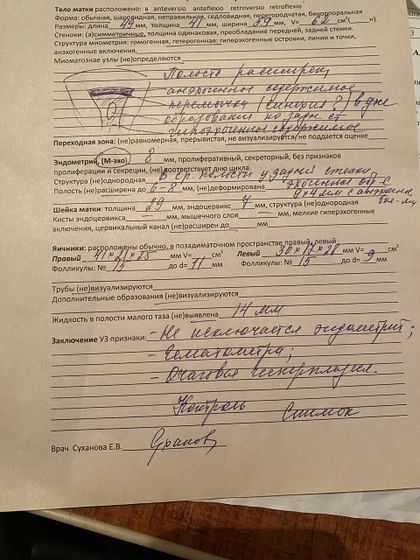 Тело матки расположено: в anteversio anteflexio retroversio retroflexio
Форма: обычная, шаровидная, неправильная, седловидная, перегородчатая, бикорпоральная
Размеры: длина 44 мм, толщина 41 мм, ширина мм, V= см³( н).
Стенки: (а)симметричные, толщина одинаковая, преобладание передней, задней стенки.
Структура миометрия: гомогенная, гетерогенная: гиперэхогенные островки, линии и точки,
анэхогенные включения,
Миоматозные узлы (не)определяются
Полость расширена,
анэхогенное содержимое
перемычка (синехия?) в дне
образования по задн. ст
содержимое
Переходная зона: (не)равномерная, прерывистая, не визуализируется, не поддается оценке
Эндометрий, (М-эхо) 8 мм, пролиферативный, секреторный, без признаков
пролиферации и секреции, (не)соответствует дню цикла.
Структура (не)однородная в ср. полости у задней стенки
Полость (не)расширена до 6-8 мм, (не)деформирована
4х4 мм с анэхоген.
вкл-ми
Шейка матки: толщина 29 мм, эндоцервикс 7 мм, структура (не)однородная
Кисты эндоцервикса — мм, мышечного слоя — мм, мелкие гиперэхогенные
включения, цервикальный канал (не)расширен до мм
Яичники: расположены обычно, в позадиматочном пространстве правый, левый
Правый 41×21×25 мм V= см³ Левый мм V= см³
Фолликулы: № 15 до d= 11 мм Фолликулы: № 15 до d= 9 мм
Трубы (не)визуализируются
Дополнительные образования (не)визуализируются
Жидкость в полости малого таза (не)выявлена 14 мм
Заключение УЗ признаки: - Не исключается эндометрит;
- Гематометра;
- Очаговая гиперплазия.
Контроль
Снимок
Врач Суханова Е.В.